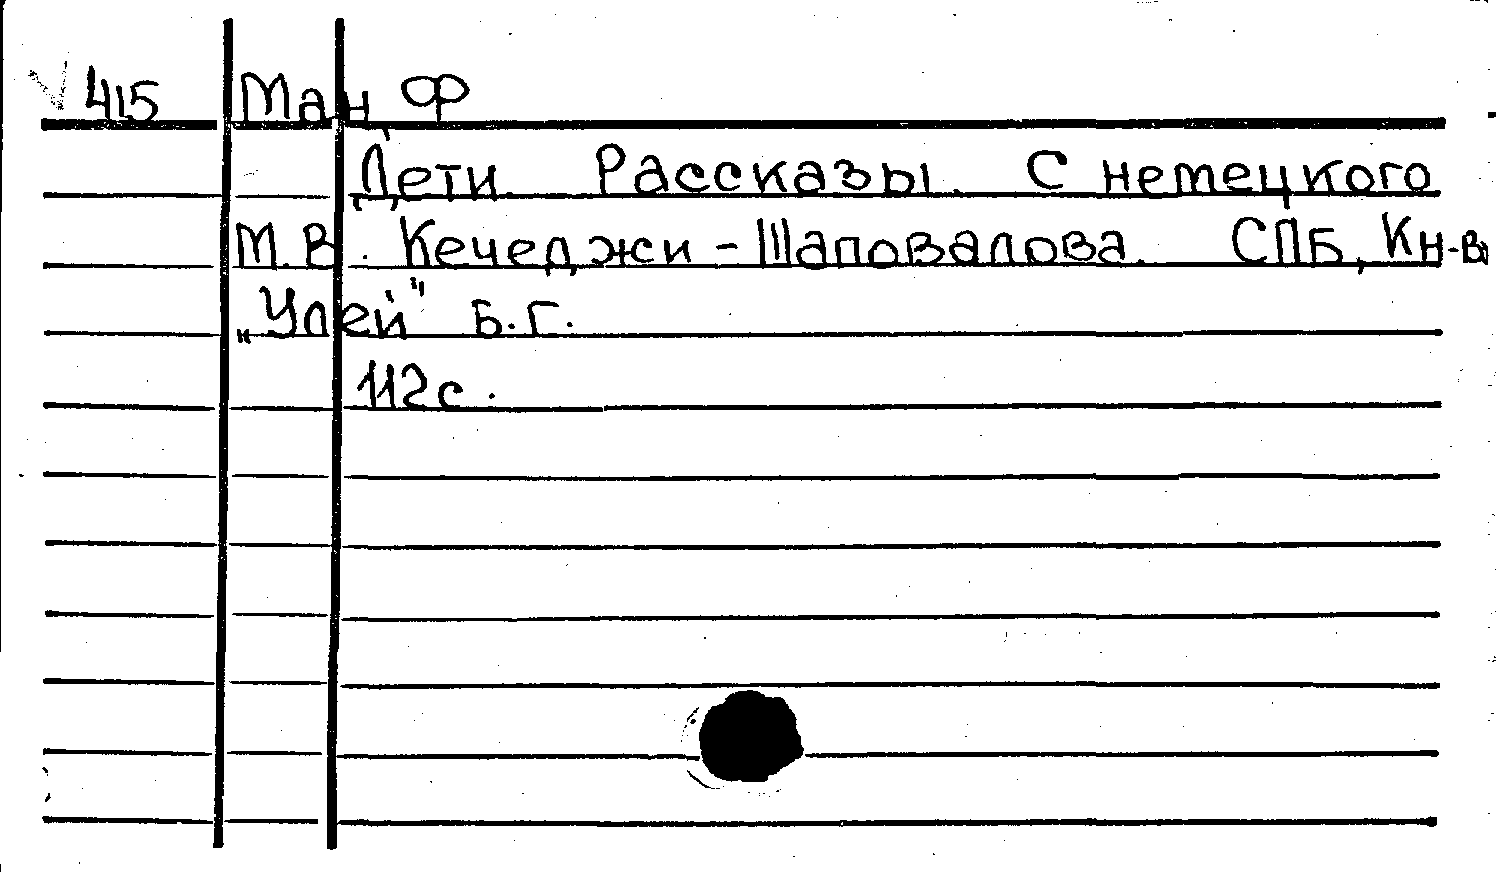 415 Ман, Ф
Дети. Рассказы. С немецкого
М.В. Кечеджи-Шаповалова. СПБ, Кн-во
„Улей" Б.Г.
112с.